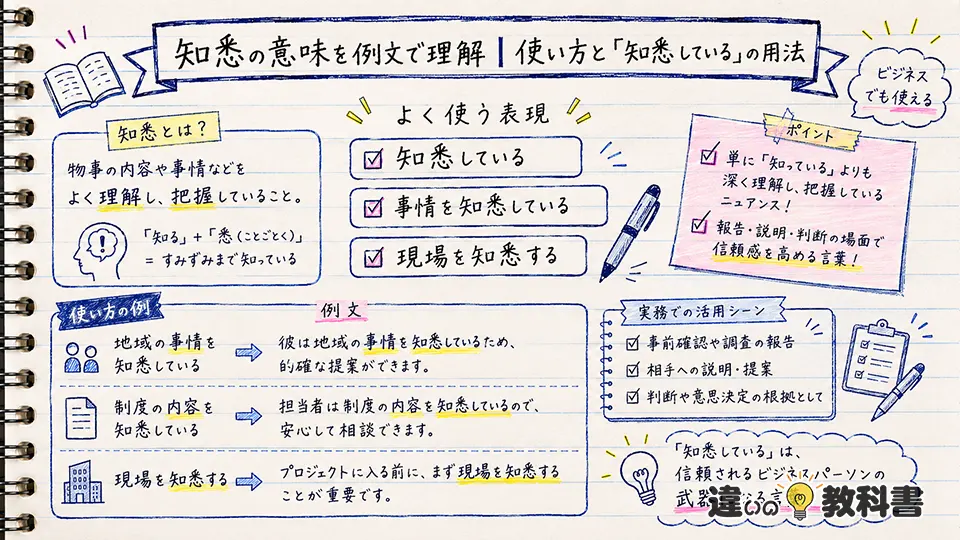 知悉の意味を例文で理解｜使い方と「知悉している」の用法
ビジネス
でも使える
知悉とは？
物事の内容や事情などを
よく理解し、把握していること。
「知る」+「悉（ことごとく）」
= すみずみまで知っている
よく使う表現
知悉している
事情を知悉している
現場を知悉する
ポイント
単に「知っている」よりも
深く理解し、把握している
ニュアンス！
報告・説明・判断の場面で
信頼感を高める言葉！
使い方の例
例文
地域の事情を
知悉している
彼は地域の事情を知悉しているため、
的確な提案ができます。
制度の内容を
知悉している
担当者は制度の内容を知悉しているので、
安心して相談できます。
現場を知悉する
プロジェクトに入る前に、まず現場を知悉する
ことが重要です。
実務での活用シーン
事前確認や調査の報告
相手への説明・提案
判断や意思決定の根拠として
「知悉している」は、
信頼されるビジネスパーソンの
武器
る言
違いの教科書